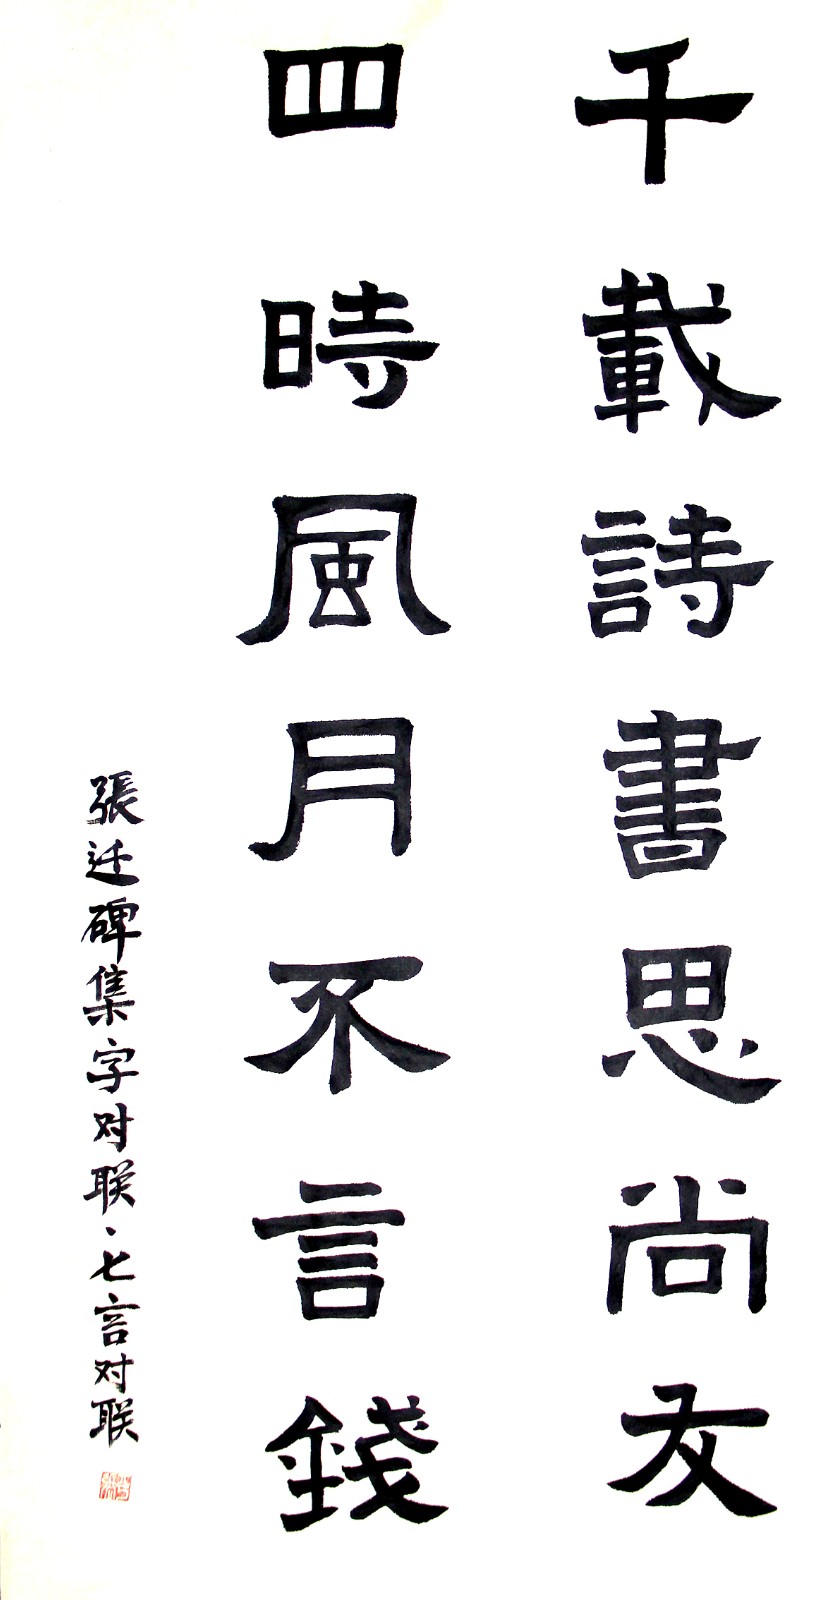 千載詩書思尚友
四時風月不言錢
張迁碑集字对联、七言对联